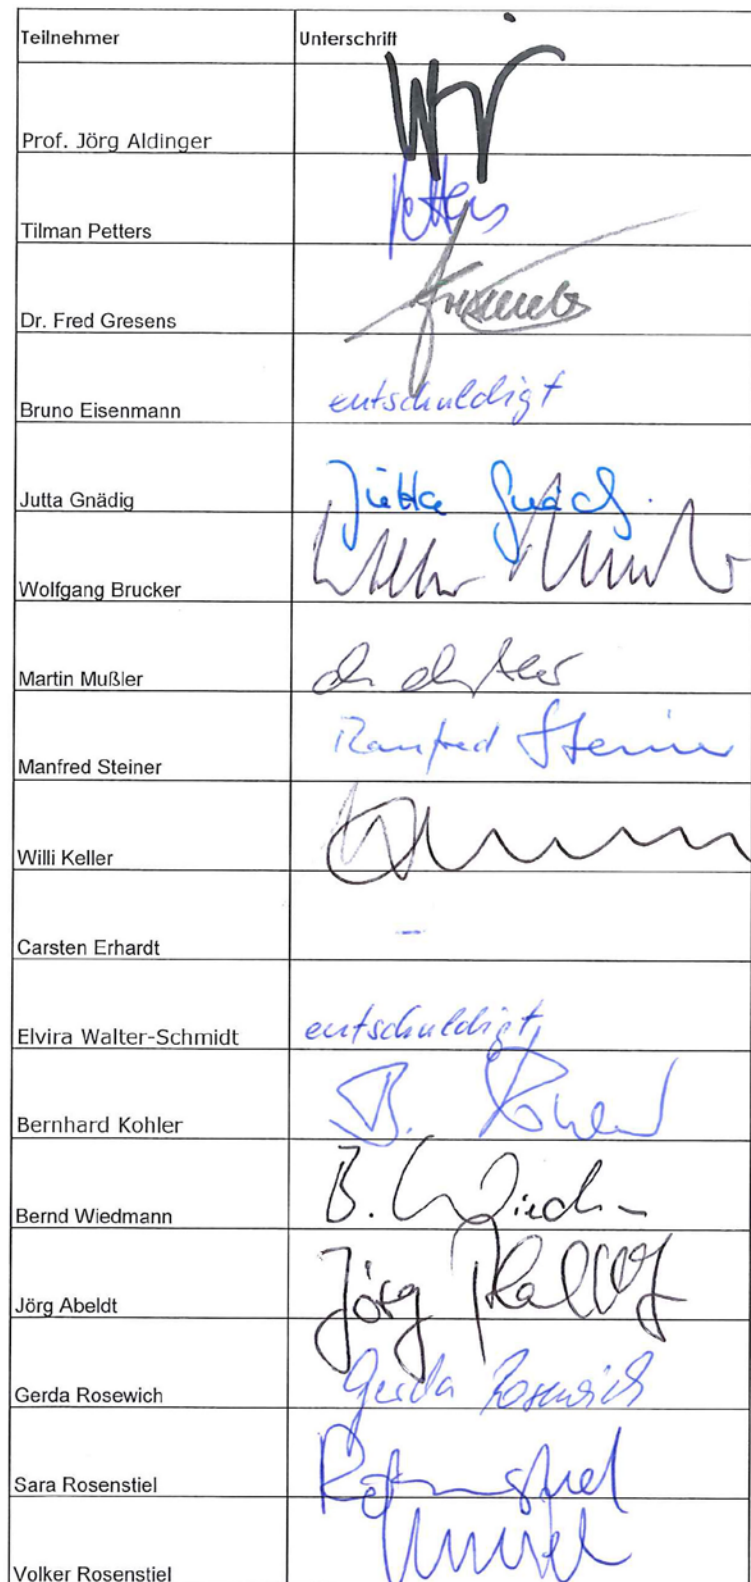 Teilnehmer Unterschrift
Prof. Jörg Aldinger
Tilman Petters Petters
Dr. Fred Gresens
Bruno Eisenmann entschuldigt
Jutta Gnädig Jutta
Wolfgang Brucker
Martin Mußler
Manfred Steiner Manfred Steiner
Willi Keller
Carsten Erhardt –
Elvira Walter-Schmidt entschuldigt
Bernhard Kohler B.
Bernd Wiedmann B.
Jörg Abeldt Jörg
Gerda Rosewich Gerda Rosewich
Sara Rosenstiel
Volker Rosenstiel